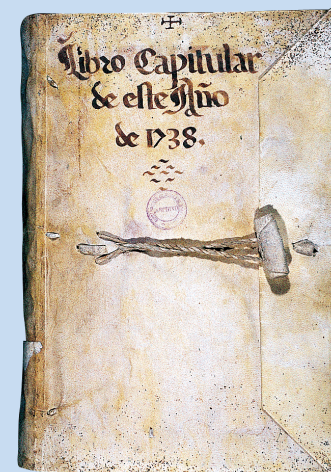 Libro Capitular
de este Año
de 1738.